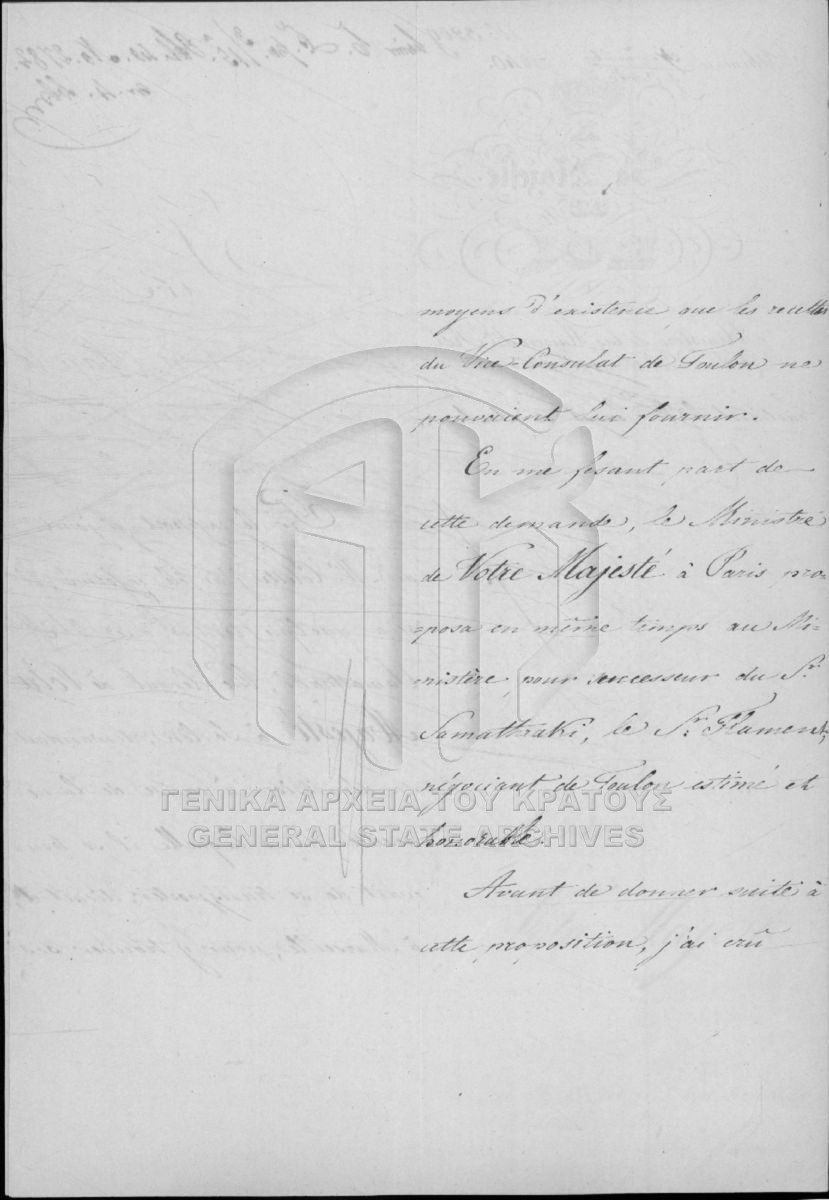 moyens d'existence que les recettes
du Vice-Consulat de Toulon ne
pouvaient lui fournir.
En me fesant part de
cette demande, le Ministre
de Votre Majesté à Paris pro-
posa en même temps au Mi-
nistère, pour successeur du Sr.
Samathraki, le Sr. Flament,
négociant de Toulon estimé et
honorable.
Avant de donner suite à
cette proposition, j'ai crû
ΓΕΝΙΚΑ ΑΡΧΕΙΑ ΤΟΥ ΚΡΑΤΟΥΣ
GENERAL STATE ARCHIVES